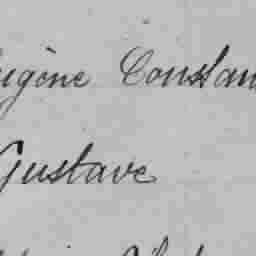 Eugène Constan
Gustave